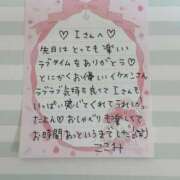 ♡ Iさんへ ♡
先日はとっても楽しい
ラブタイムをありがとう♡
とにかくお優しいイケメンさん
ラブラブ気持ち良くて Iさんも
いっぱい感じてくれてうれしい
たよん♡ おしゃべりも楽しくって
お時間あっというまでした
ここみ